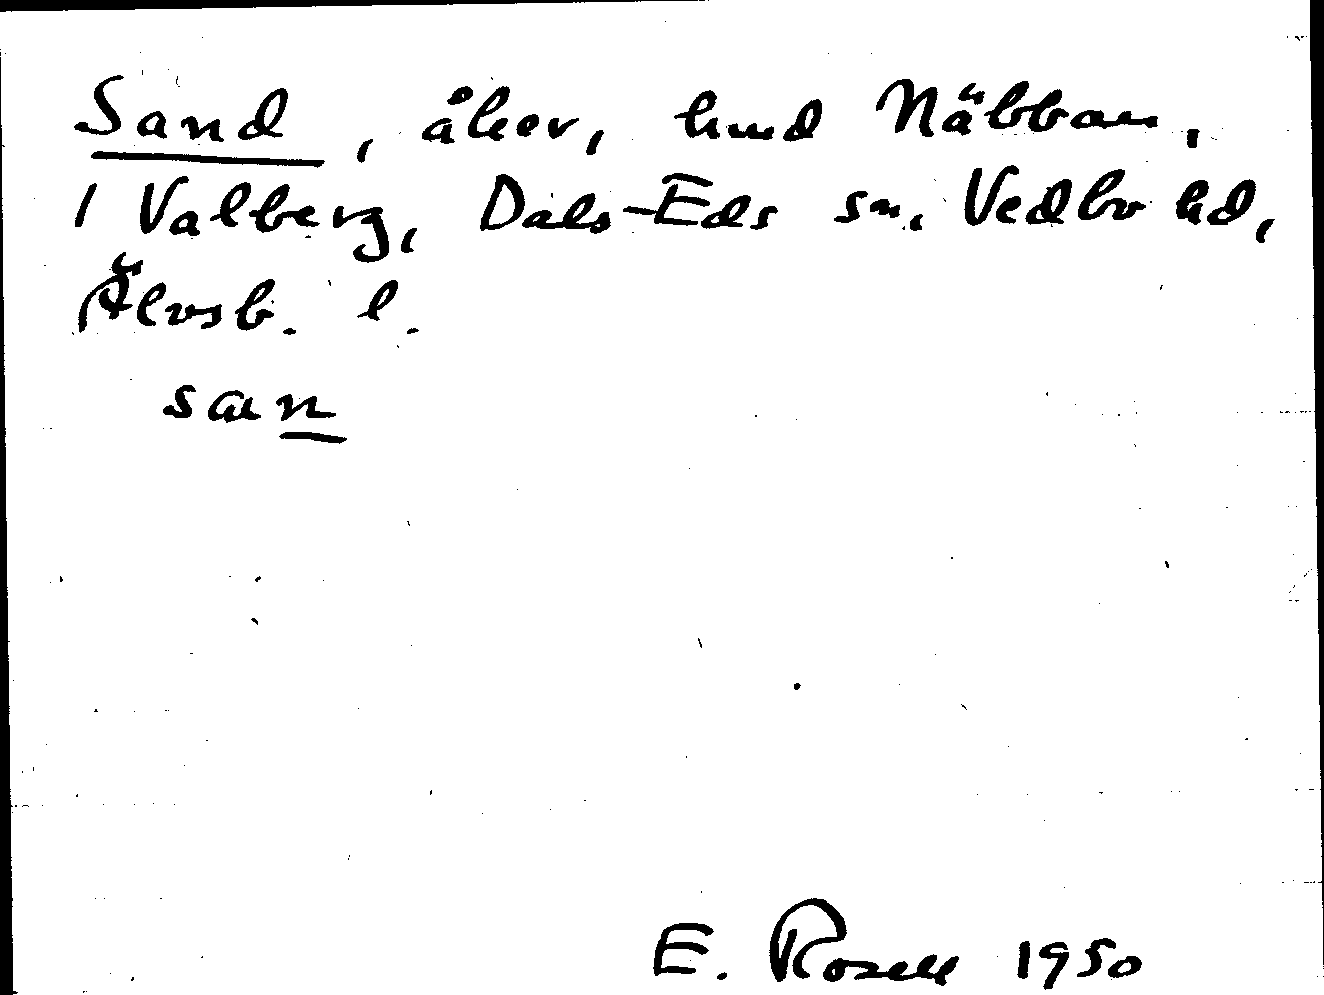 Sand, åker, hmd Näbban,
1 Valberg, Dals-Eds sn, Vedbo hd,
Älvsb. l.
san
E. Rosell 1950